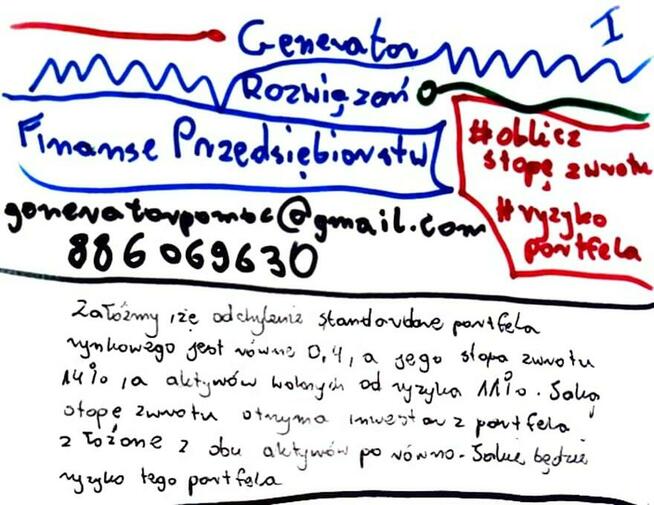 Generator
I
Rozwiązań
Finanse Przedsiębiorstw
#oblicz
stopę zwrotu
#ryzyko
portfela
generatorpomoc@gmail.com
886 069630
Załóżmy, że odchylenie standardowe portfela
rynkowego jest równe 0,4, a jego stopa zwrotu
14%, a aktywów wolnych od ryzyka 11%. Jaką
stopę zwrotu otrzyma inwestor z portfela
złożone z obu aktywów po równo. Jakie będzie
ryzyko tego portfela